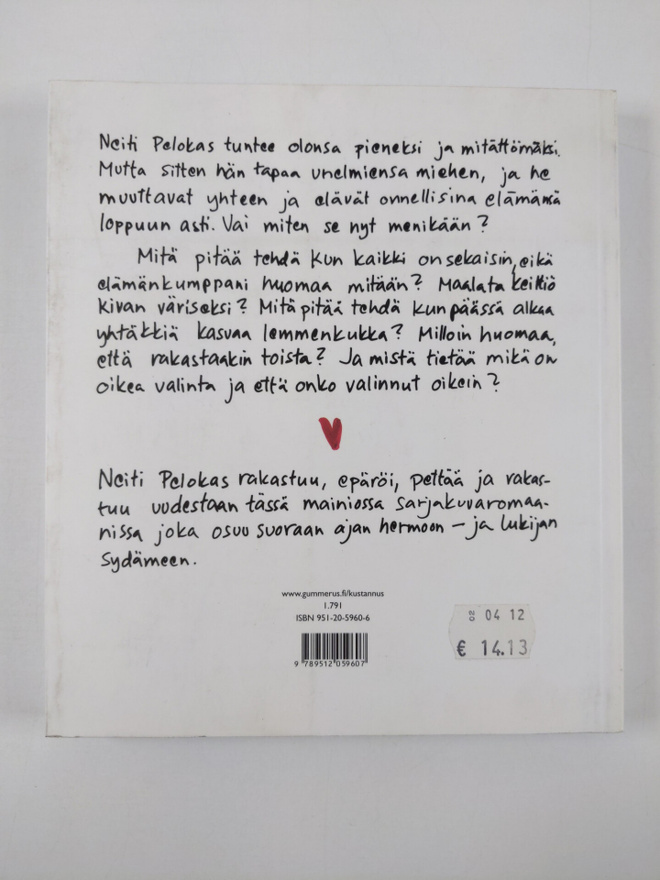 Neiti Pelokas tuntee olonsa pieneksi ja mitättömäksi.
Mutta sitten hän tapaa unelmiensa miehen, ja he
muuttavat yhteen ja elävät onnellisina elämänsä
loppuun asti. Vai miten se nyt menikään?
Mitä pitää tehdä kun kaikki on sekaisin, eikä
elämänkumppani huomaa mitään? Maalata keittiö
kivan väriseksi? Mitä pitää tehdä kun päässä alkaa
yhtäkkiä kasvaa lemmenkukka? Milloin huomaa,
että rakastaakin toista? Ja mistä tietää mikä on
oikea valinta ja että onko valinnut oikein?
Neiti Pelokas rakastuu, epäröi, pettää ja rakas-
tuu uudestaan tässä mainiossa sarjakuvaromaa-
nissa joka osuu suoraan ajan hermoon – ja lukijan
sydämeen.
www.gummerus.fi/kustannus
1.791
ISBN 951-20-5960-6
9 789512 059607
02 04 12
€ 14.13